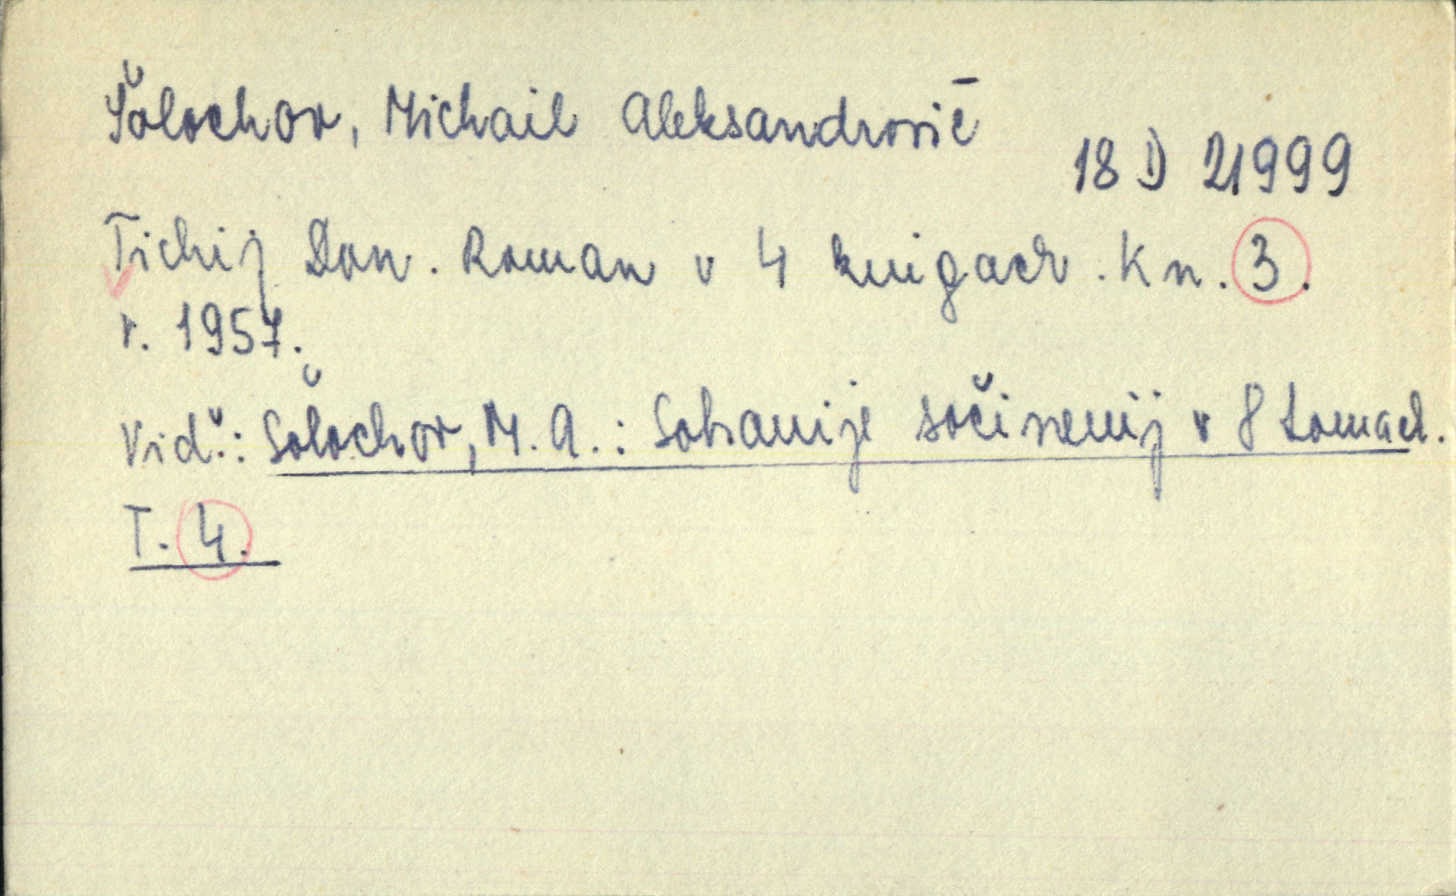 Šolochov, Michail Aleksandrovič
18 D 21999
Tichij Don. Roman v 4 knigach. Kn. 3.
r. 1957.
Viď: Šolochov, M. A.: Sobranije sočinenij v 8 tomach.
T. 4.